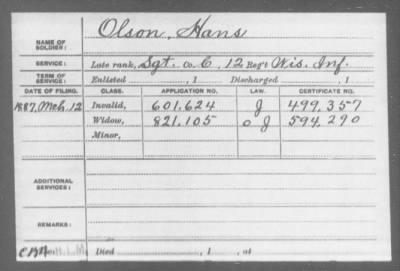 NAME OF SOLDIER: Olson, Hans
SERVICE: Late rank, Sgt. Co. C, 12 Reg't Wis. Inf.
TERM OF SERVICE: Enlisted , 1 Discharged , 1
DATE OF FILING. CLASS. APPLICATION NO. LAW. CERTIFICATE NO.
1887, Mch. 12 Invalid, 601.624 J 499.357
Widow, 821.105 J 594.290
Minor,
ADDITIONAL SERVICES:
REMARKS:
Died , 1 , at